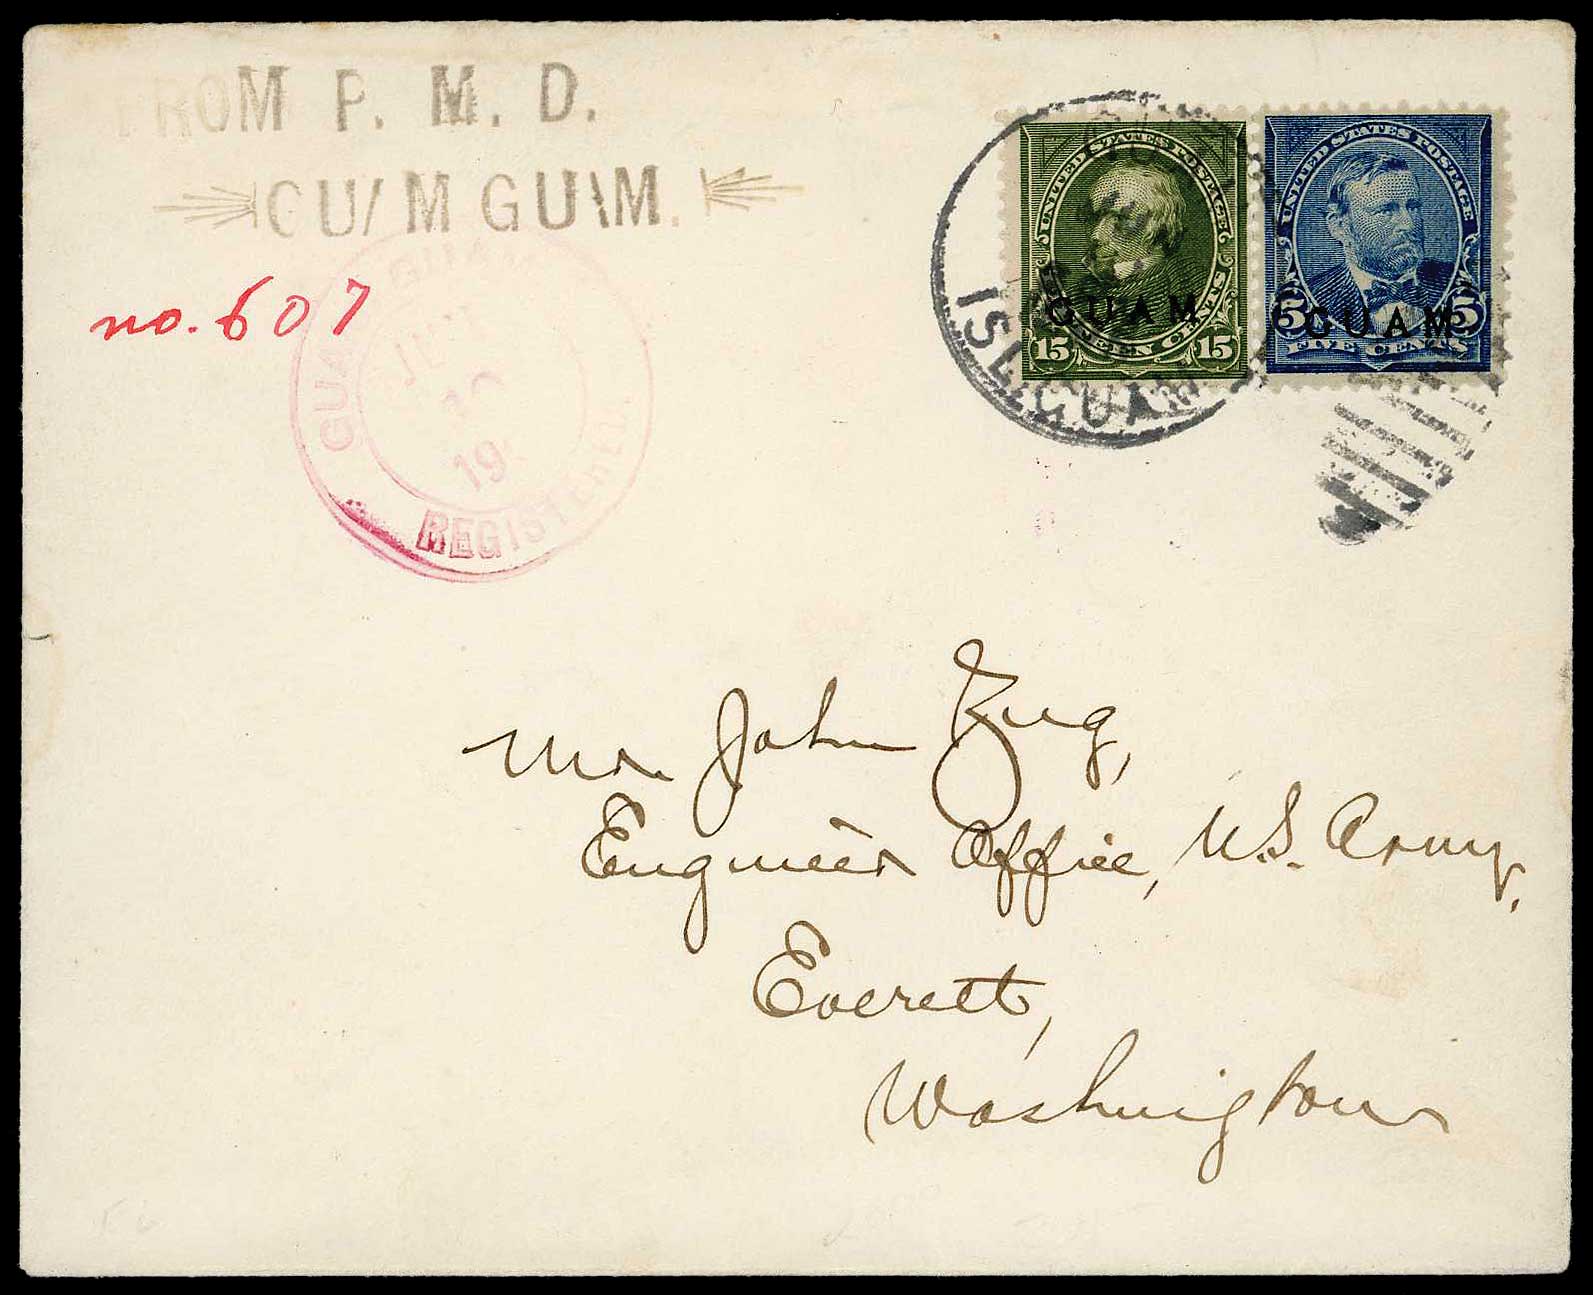 FROM P. M. D.
GUAM GUAM.
no. 607
GUAM GUAM
REGISTERED.
19
ISL. GUAM
UNITED STATES POSTAGE
GUAM
15 FIFTEEN CENTS 15
UNITED STATES POSTAGE
5 GUAM 5
FIVE CENTS
Mr. John Zug,
Engineer Office, U.S. Army,
Everett,
Washington